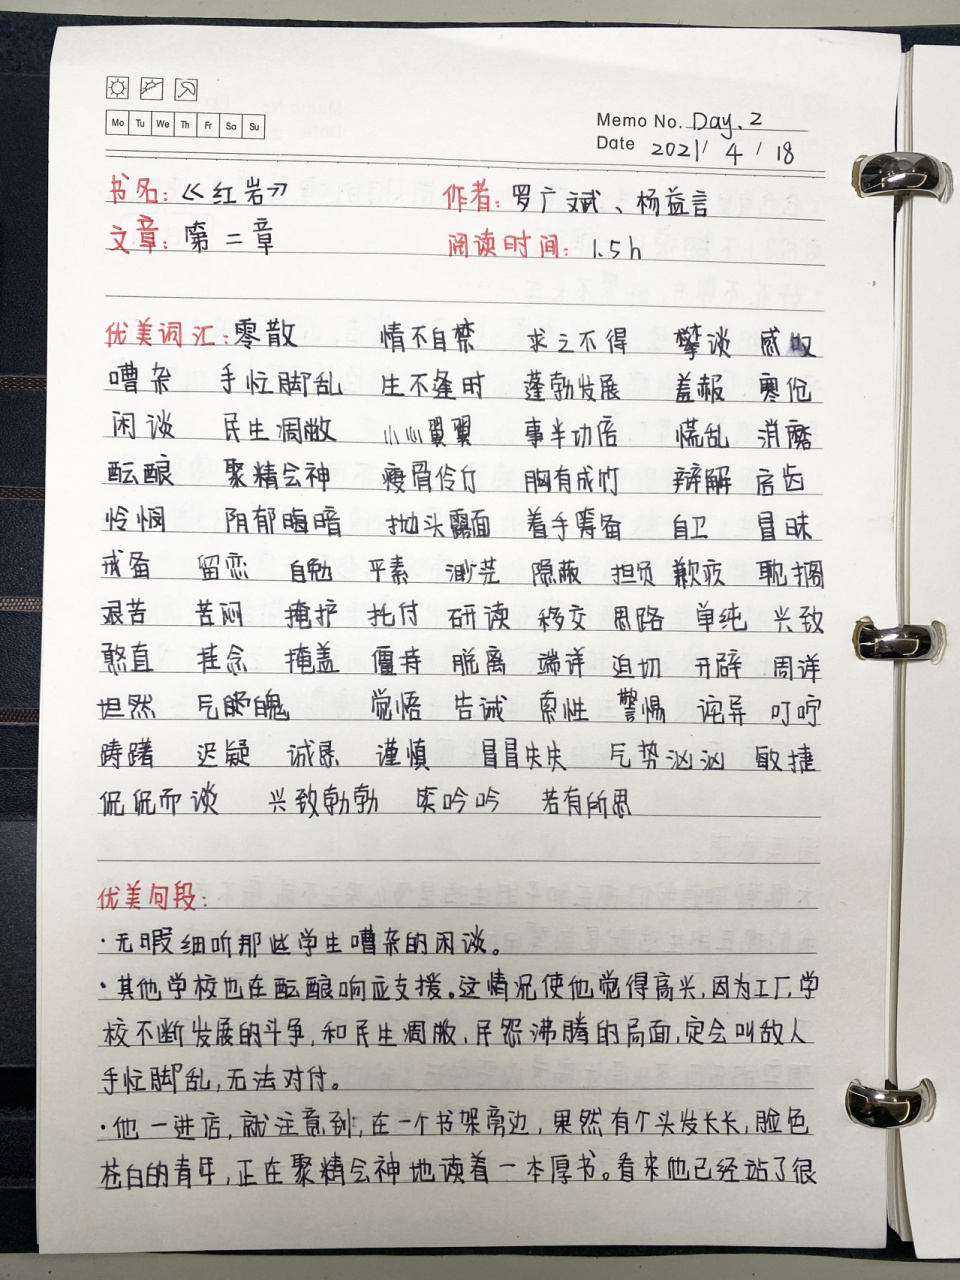 Mo Tu We Th Fr Sa Su
Memo No. Day. 2
Date 2021/ 4 / 18
书名:《红岩》 作者: 罗广斌、杨益言
文章: 第二章 阅读时间: 1.5h
优美词汇: 零散 情不自禁 求之不得 攀谈 感
嘈杂 手忙脚乱 生不逢时 蓬勃发展 羞赧 寒伧
闲谈 民生凋敝 小心翼翼 事半功倍 慌乱 消磨
酝酿 聚精会神 瘦骨伶仃 胸有成竹 辩解 启齿
怜悯 阴郁晦暗 抛头露面 着手筹备 自卫 冒昧
戒备 留恋 自勉 平素 渺茫 隐蔽 担负 歉疚 耽搁
艰苦 苦闷 掩护 托付 研读 移交 思路 单纯 兴致
憨直 挂念 掩盖 僵持 脱离 端详 迫切 开辟 周详
坦然 气魄 觉悟 告诫 索性 警惕 诧异 叮咛
踌躇 迟疑 诚恳 谨慎 冒冒失失 气势汹汹 敏捷
侃侃而谈 兴致勃勃 笑吟吟 若有所思
优美句段:
·无暇细听那些学生嘈杂的闲谈。
·其他学校也在酝酿响应支援。这情况使他觉得高兴,因为工厂、学
校不断发展的斗争,和民生凋敝、民怨沸腾的局面,定会叫敌人
手忙脚乱,无法对付。
·他一进店,就注意到,在一个书架旁边,果然有个头发长长,脸色
苍白的青年,正在聚精会神地读着一本厚书。看来他已经站了很